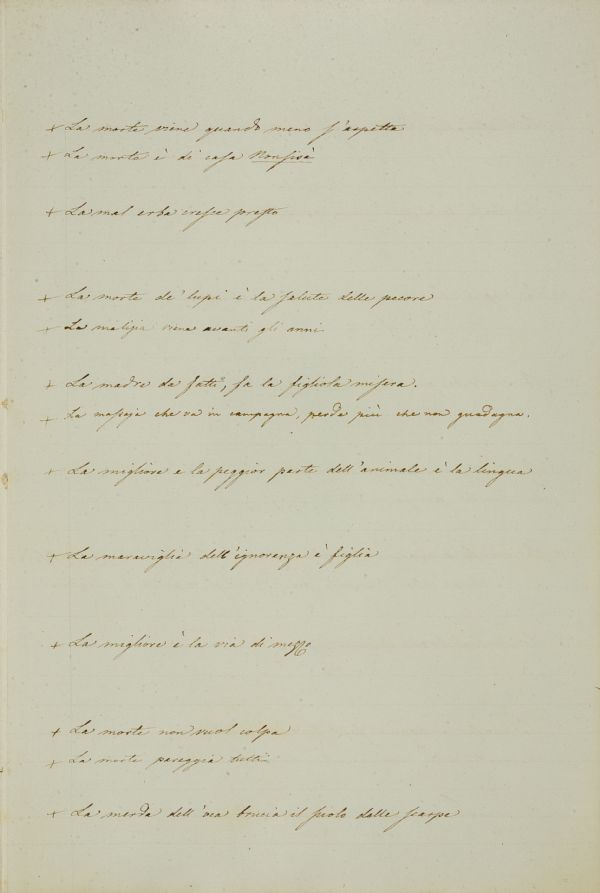 + La morte viene quando meno s'aspetta
+ La morte è di casa Nonsisà
+ La mal erba cresse presto
+ La morte de' lupi è la salute delle pecore
+ La malizia viene avanti gli anni
+ La madre da fatti, fa la figliola misera.
+ La massaja che va in campagna, perde più che non guadagna.
+ La migliore e la peggior parte dell'animale è la lingua
+ La maraviglia dell'ignorenza è figlia
+ La migliore è la via di mezzo
+ La morte non vuol colpa
+ La morte pareggia tutti
+ La merda dell'oca brucia il suolo dalle scarpe